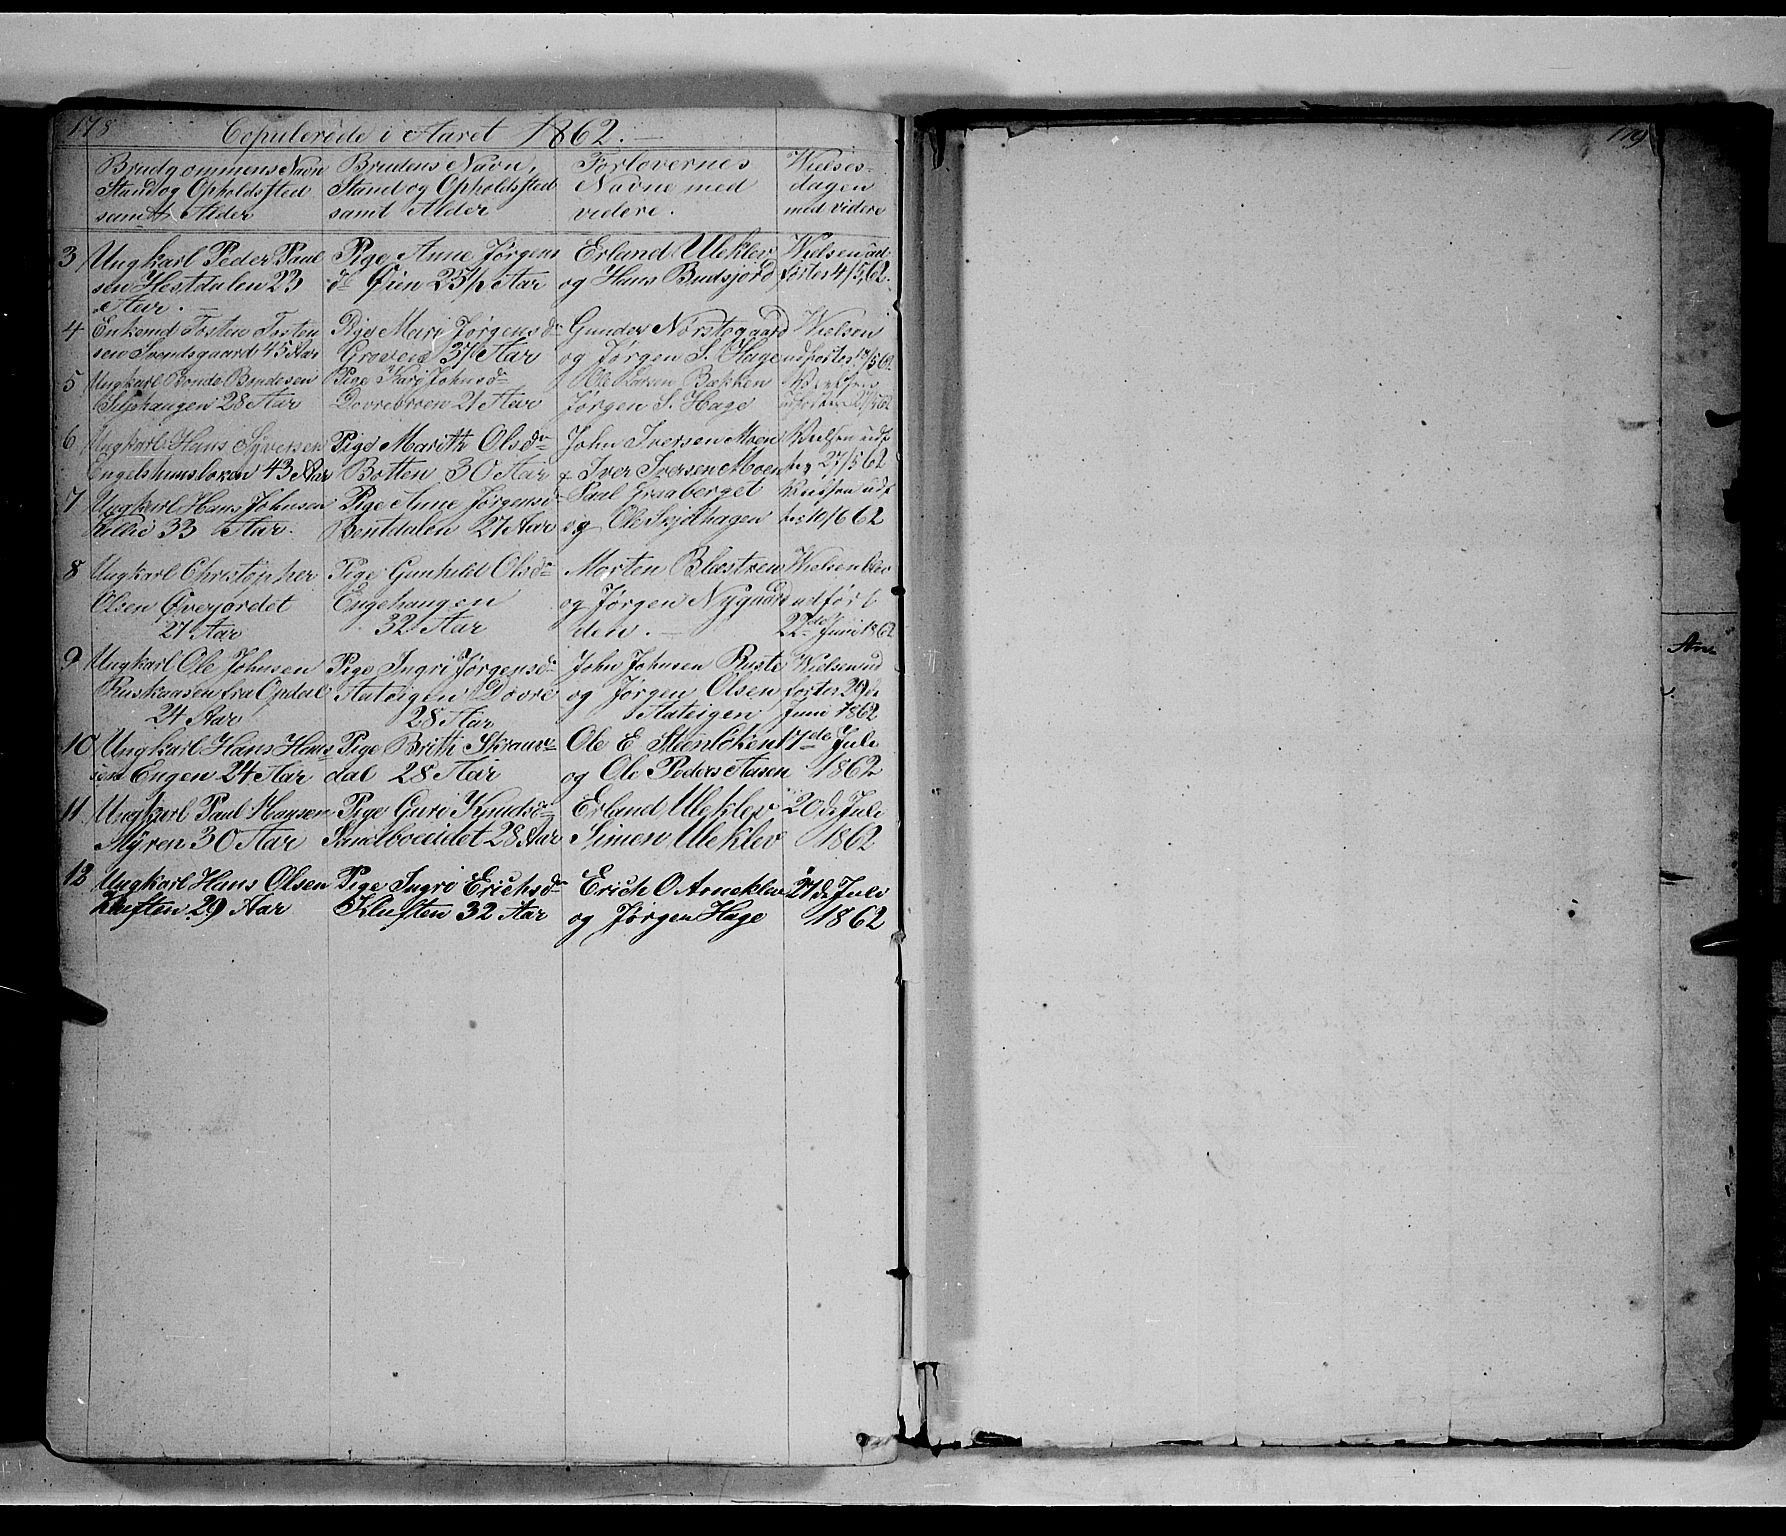 178
Copulerede i Aaret 1862.
Brudgommens Navn Stand og Opholdssted samt Alder
Brudens Navn, Stand og Opholdssted samt Alder
Forlovernes Navne med videre.
Vielses-dagen med videre
3 Ungkarl Peder Paul
sen Hestdalen 23
Aar.
Pige Anne Jørgens
dr Øien 25½ Aar
Erland Uleklev
og Hans Budsjord
Vielsen ud
førtes 4/5 62.
4 Enkemd Tosten Tosten
sen Svendsgaard 45 Aar
Pige Mari Jørgensdr
Groven 37 Aar
Gunder Norstegaard
og Jørgen S. Hage
Vielsen
udførtes 17/5 62
5 Ungkarl Bonde Bondesen
28 Aar
Pige Kari Johnsdr
Dovrebroen 21 Aar
Ole Larsen Bækken
Jørgen S. Hage
Vielsen
udførtes 27/5 62
6 Ungkarl Hans Syversen
Engelshusløken 43 Aar
Pige Marith Olsdr
Botten 30 Aar
John Iversen Moen
& Iver Iversen Moen
Vielsen udf
27/5 62
7 Ungkarl Hans Johnsen
33 Aar.
Pige Anne Jørgensd
Bentdalen 27 Aar
Paul Graaberget
og Ole Skjølhagen
Vielsen udf
10/6 62
8 Ungkarl Christopher
Olsen Øverjordet
27 Aar
Pige Gunhild Olsdr
Engehaugen
32 Aar
Morten Blæstren
og Jørgen Nygaard
den.
Vielsen blev
udført
22de Juni 1862
9 Ungkarl Ole Johnsen
Ruskaasen fra Opdal
24 Aar
Pige Ingri Jørgensdr
Aateigen Dovre
28 Aar
John Johnsen Ruste
og Jørgen Olsen
Aateigen
Vielsen ud
førtes 29de
Juni 1862
10 Ungkarl Hans Hans
sen Engen 24 Aar
Pige Brith Skrauv-
dal 28 Aar
Ole E Stenløken
og Ole Peders Aasen
17de Juli
1862
11 Ungkarl Paul Hansen
Myren 30 Aar
Pige Guri Knudsdr
Sandboeiidet 28 Aar
Erland Uleklev
Simen Uleklev
20de Juli
1862
12 Ungkarl Hans Olsen
Kluften 29 Aar
Pige Ingri Erichsdr
Kluften 32 Aar
Erich O Arneklev
og Jørgen Hage
27de Juli
1862
179